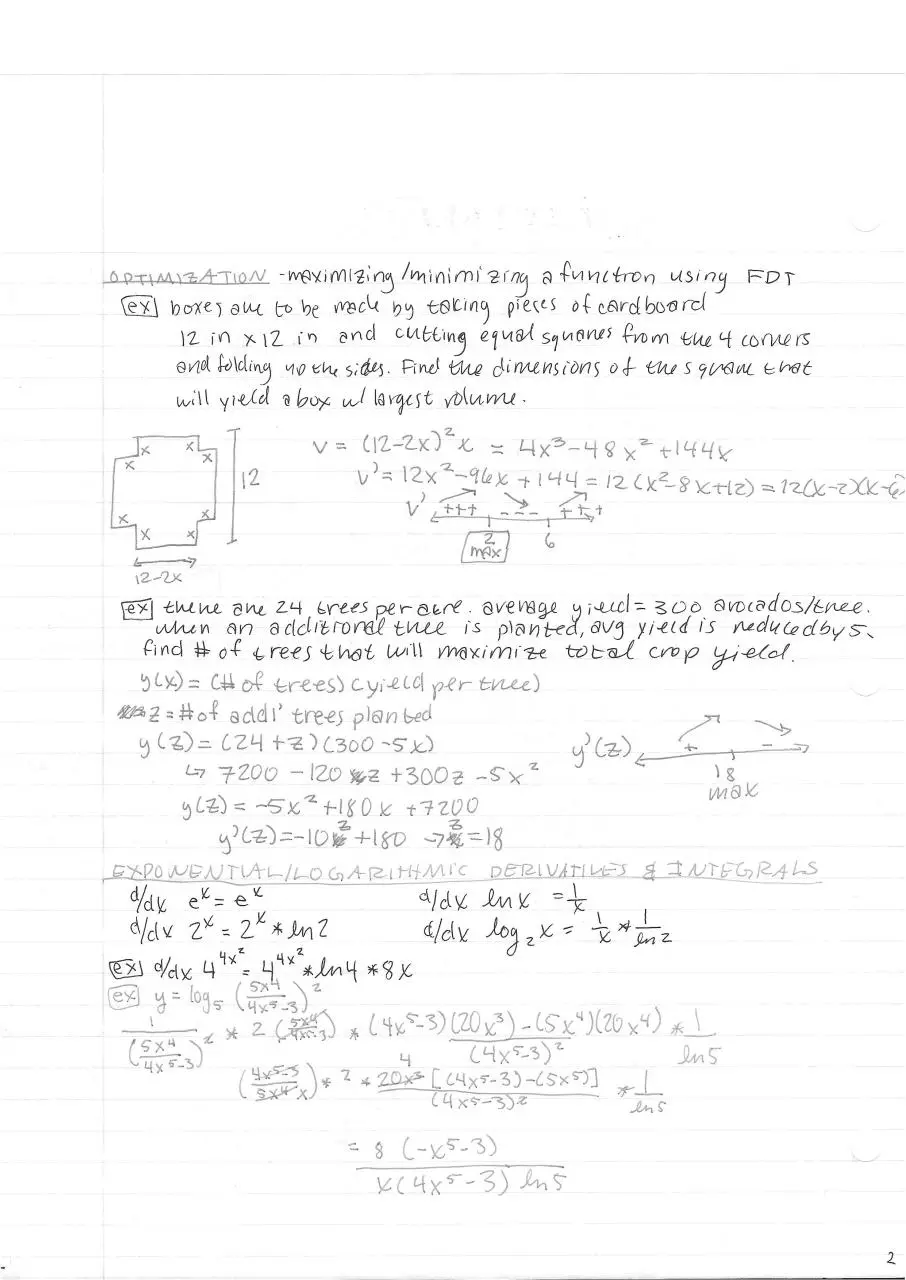 OPTIMIZATION - maximizing/minimizing a function using FDT
ex boxes are to be made by taking pieces of cardboard
12 in x 12 in and cutting equal squares from the 4 corners
and folding up the sides. Find the dimensions of the square that
will yield a box w/ largest volume.
V = (12-2x)²x = 4x³-48x²+144x
V' = 12x²-96x+144 = 12(x²-8x+12) = 12(x-2)(x-6)
x x x x x x x x
12
12-2x
V' +++ --- +++
2 6
max
ex there are 24 trees per acre. average yield = 300 avocados/tree.
when an additional tree is planted, avg yield is reduced by 5.
find # of trees that will maximize total crop yield.
y(x) = (# of trees)(yield per tree)
z = # of addl' trees planted
y(z) = (24+z)(300-5x)
↳ 7200 - 120z + 300z - 5x²
y(z) = -5x²+180x+7200
y'(z) = -10z+180 → z=18
y'(z) + -
18
max
EXPONENTIAL/LOGARITHMIC DERIVATIVES & INTEGRALS
d/dx eˣ = eˣ d/dx ln x = 1/x
d/dx 2ˣ = 2ˣ * ln2 d/dx log₂x = 1/x * 1/ln2
ex d/dx 4^4x² = 4^4x² * ln4 * 8x
ex y = log₅ (5x⁴/4x⁵-3)²
1/(5x⁴/4x⁵-3)² * 2 (5x⁴/4x⁵-3) * (4x⁵-3)(20x³)-(5x⁴)(20x⁴)/(4x⁵-3)² * 1/ln5
(4x⁵-3/5x⁴x) * 2 * 4 20x³[(4x⁵-3)-(5x⁵)]/(4x⁵-3)² * 1/ln5
= 8(-x⁵-3)
x(4x⁵-3) ln5
2